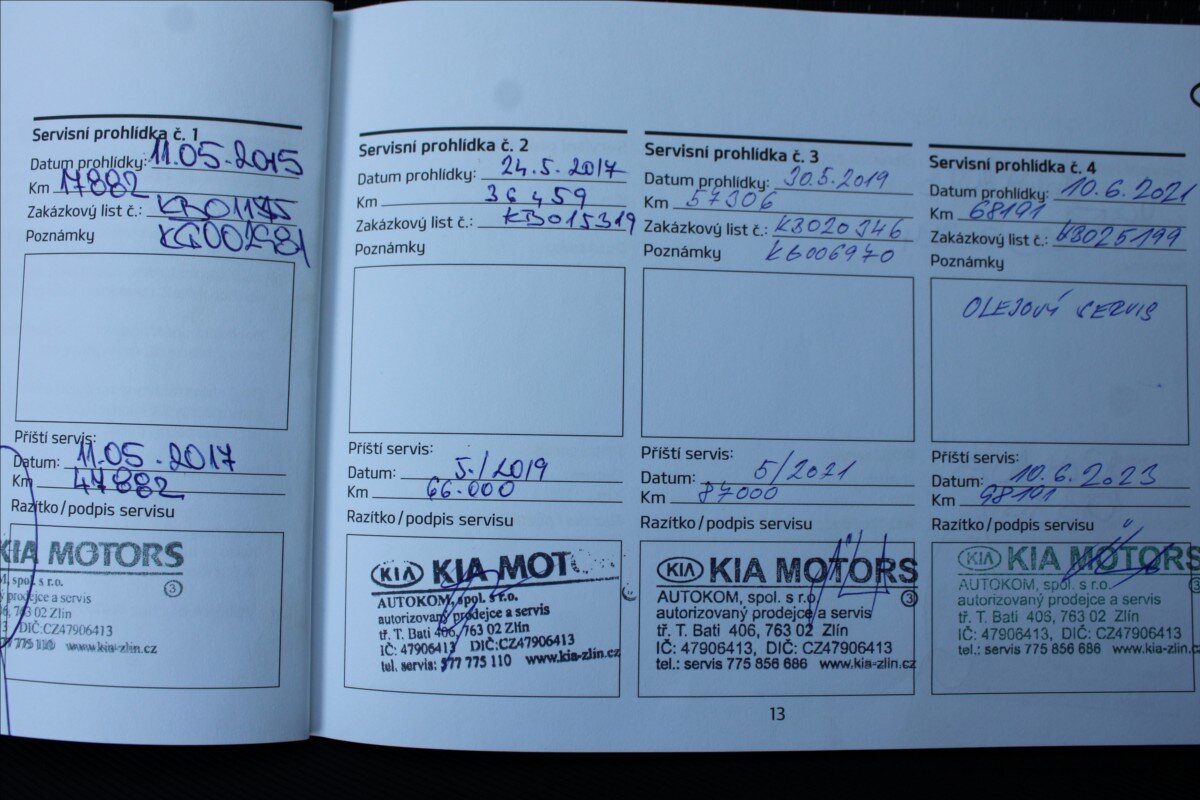 Servisní prohlídka č. 1
Datum prohlídky: 11.05.2015
Km 17882
Zakázkový list č.:
Poznámky
Příští servis:
Datum: 11.05.2017
Km 47882
Razítko/podpis servisu
KIA MOTORS
spol. s r.o.
prodejce a servis
406, 763 02 Zlín
DIČ:CZ47906413
777 775 110 www.kia-zlin.cz
3
Servisní prohlídka č. 2
Datum prohlídky: 24.5.2017
Km 36459
Zakázkový list č.: KB015319
Poznámky
Příští servis:
Datum: 5./2019
Km 66.000
Razítko/podpis servisu
KIA KIA MOT
AUTOKOM, spol. s r.o.
autorizovaný prodejce a servis
tř. T. Bati 406, 763 02 Zlín
IČ: 47906413 DIČ:CZ47906413
tel. servis: 577 775 110 www.kia-zlin.cz
Servisní prohlídka č. 3
Datum prohlídky: 30.5.2019
Km 57306
Zakázkový list č.: KB020346
Poznámky KG006970
Příští servis:
Datum: 5/2021
Km 87000
Razítko/podpis servisu
KIA KIA MOTORS
AUTOKOM, spol. s r.o. 3
autorizovaný prodejce a servis
tř. T. Bati 406, 763 02 Zlín
IČ: 47906413, DIČ: CZ47906413
tel.: servis 775 856 686 www.kia-zlin.cz
Servisní prohlídka č. 4
Datum prohlídky: 10.6.2021
Km 68191
Zakázkový list č.: KB025199
Poznámky
OLEJOVÝ SERVIS
Příští servis:
Datum: 10.6.2023
Km 98191
Razítko/podpis servisu
KIA KIA MOTORS
AUTOKOM, spol. s r.o.
autorizovaný prodejce a servis
tř. T. Bati 406, 763 02 Zlín
IČ: 47906413, DIČ: CZ47906413
tel.: servis 775 856 686 www.kia-zlin.c
13